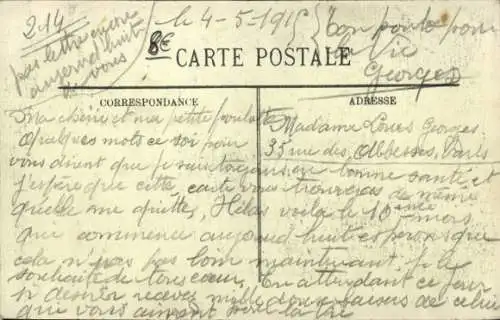 214
le 4-5-1915
ton poulo pour
la vie
Georges
pas lettre encore
aujourd huit
de vous
8€
CARTE POSTALE
CORRESPONDANCE
ADRESSE
Ma chérie et ma petite poulotte
quelques mots ce soir pour
vous disent que je suis toujours en bonne santé et
j'espère que cette carte vous trouvera de même
qu'elle me quittes, Hélas voila le 10ième mois
que commence aujourd huit esperons que
cela n'ira pas loin maintenant je le
souhaite de tous cœur, En attendant ce jour
si desirer recevez mille doux baisers de celui
que vous aiment pour la vie
Madame Louis Georges
35 rue des Abbesses, Paris